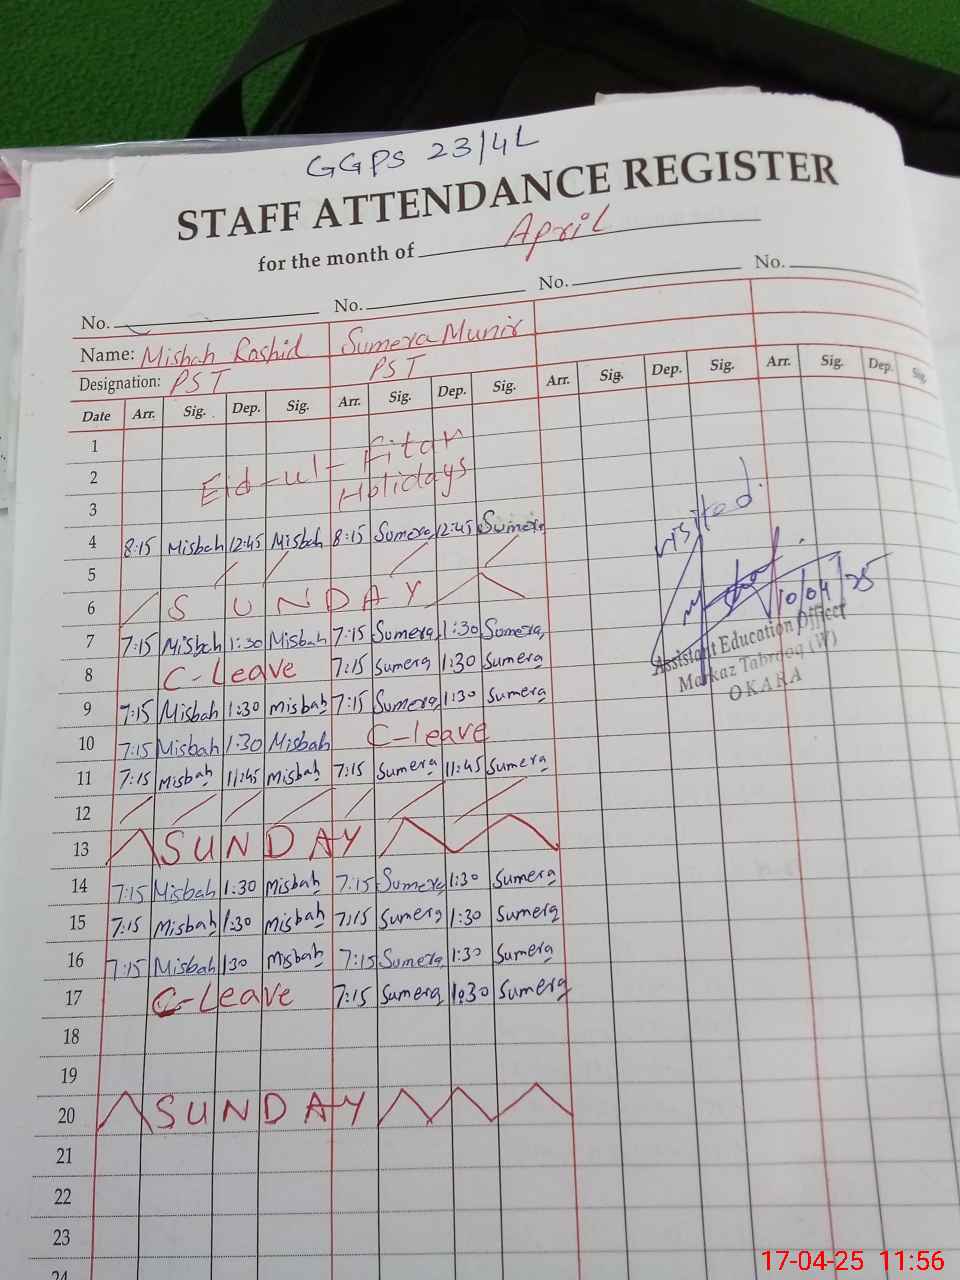 GGPS 23/4L
STAFF ATTENDANCE REGISTER
for the month of April
No. No. No. No.
Name: Misbah Rashid Sumera Munir
Designation: PST PST
Date Arr. Sig. Dep. Sig. Arr. Sig. Dep. Sig. Arr. Sig. Dep. Sig. Arr. Sig. Dep. Sig.
1
2 Eid-ul-Fitar
3 Holidays
4 8:15 Misbah 12:45 Misbah 8:15 Sumera 12:45 Sumera
5
6 SUNDAY
7 7:15 Misbah 1:30 Misbah 7:15 Sumera 1:30 Sumera
8 C-Leave 7:15 Sumera 1:30 Sumera
9 7:15 Misbah 1:30 Misbah 7:15 Sumera 1:30 Sumera
10 7:15 Misbah 1:30 Misbah C-leave
11 7:15 Misbah 11:45 Misbah 7:15 Sumera 11:45 Sumera
12
13 SUNDAY
14 7:15 Misbah 1:30 Misbah 7:15 Sumera 1:30 Sumera
15 7:15 Misbah 1:30 Misbah 7:15 Sumera 1:30 Sumera
16 7:15 Misbah 130 Misbah 7:15 Sumera 1:30 Sumera
17 C-Leave 7:15 Sumera 1:30 Sumera
18
19
20 SUNDAY
21
22
23
24
visited.
10/04/25
Assistant Education Officer
Markaz Tabrooq (W)
OKARA
17-04-25 11:56